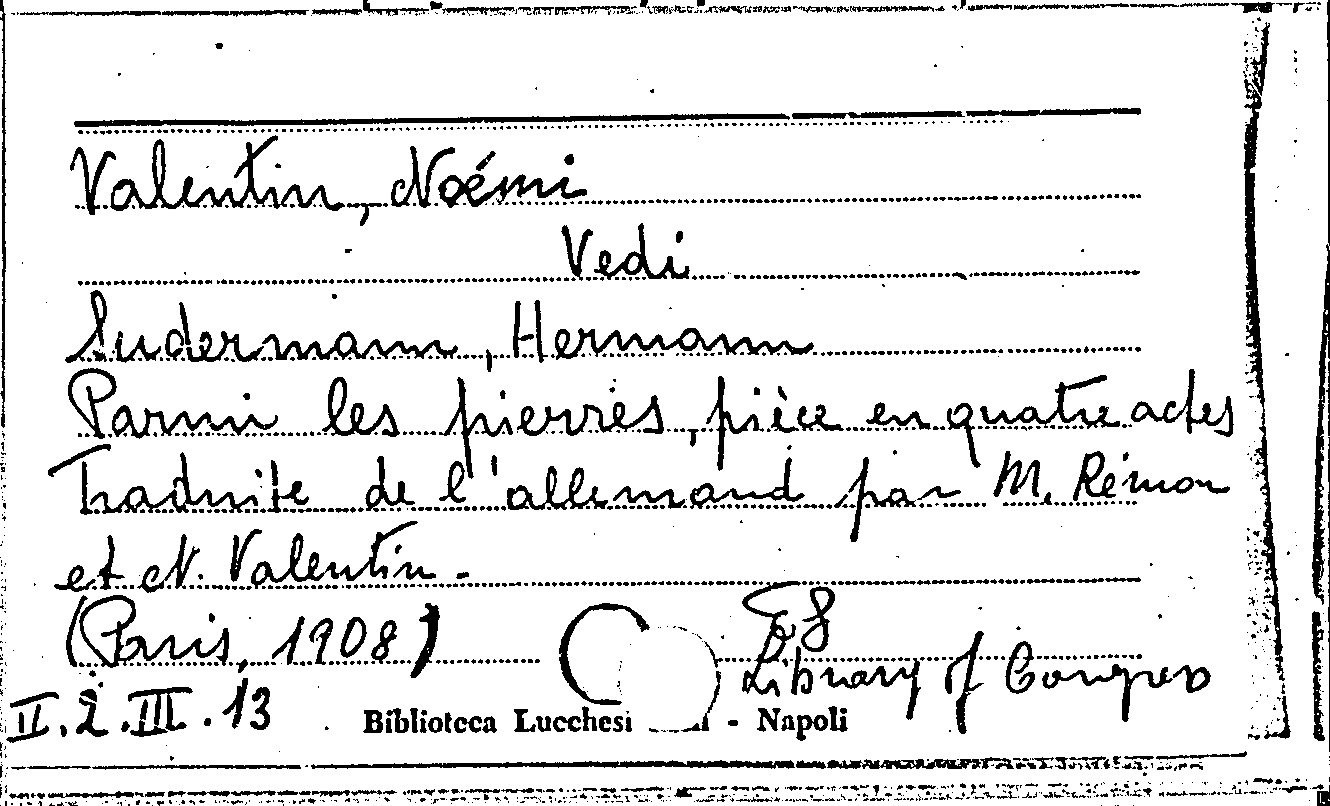 Valentin, Noémi
Vedi
Sudermann, Hermann
Parmi les pierres, pièce en quatre actes
Traduite de l'allemand par M. Rémon
et N. Valentin.
(Paris, 1908)
Library of Congress
II.2.III.13
Biblioteca Lucchesi - Napoli